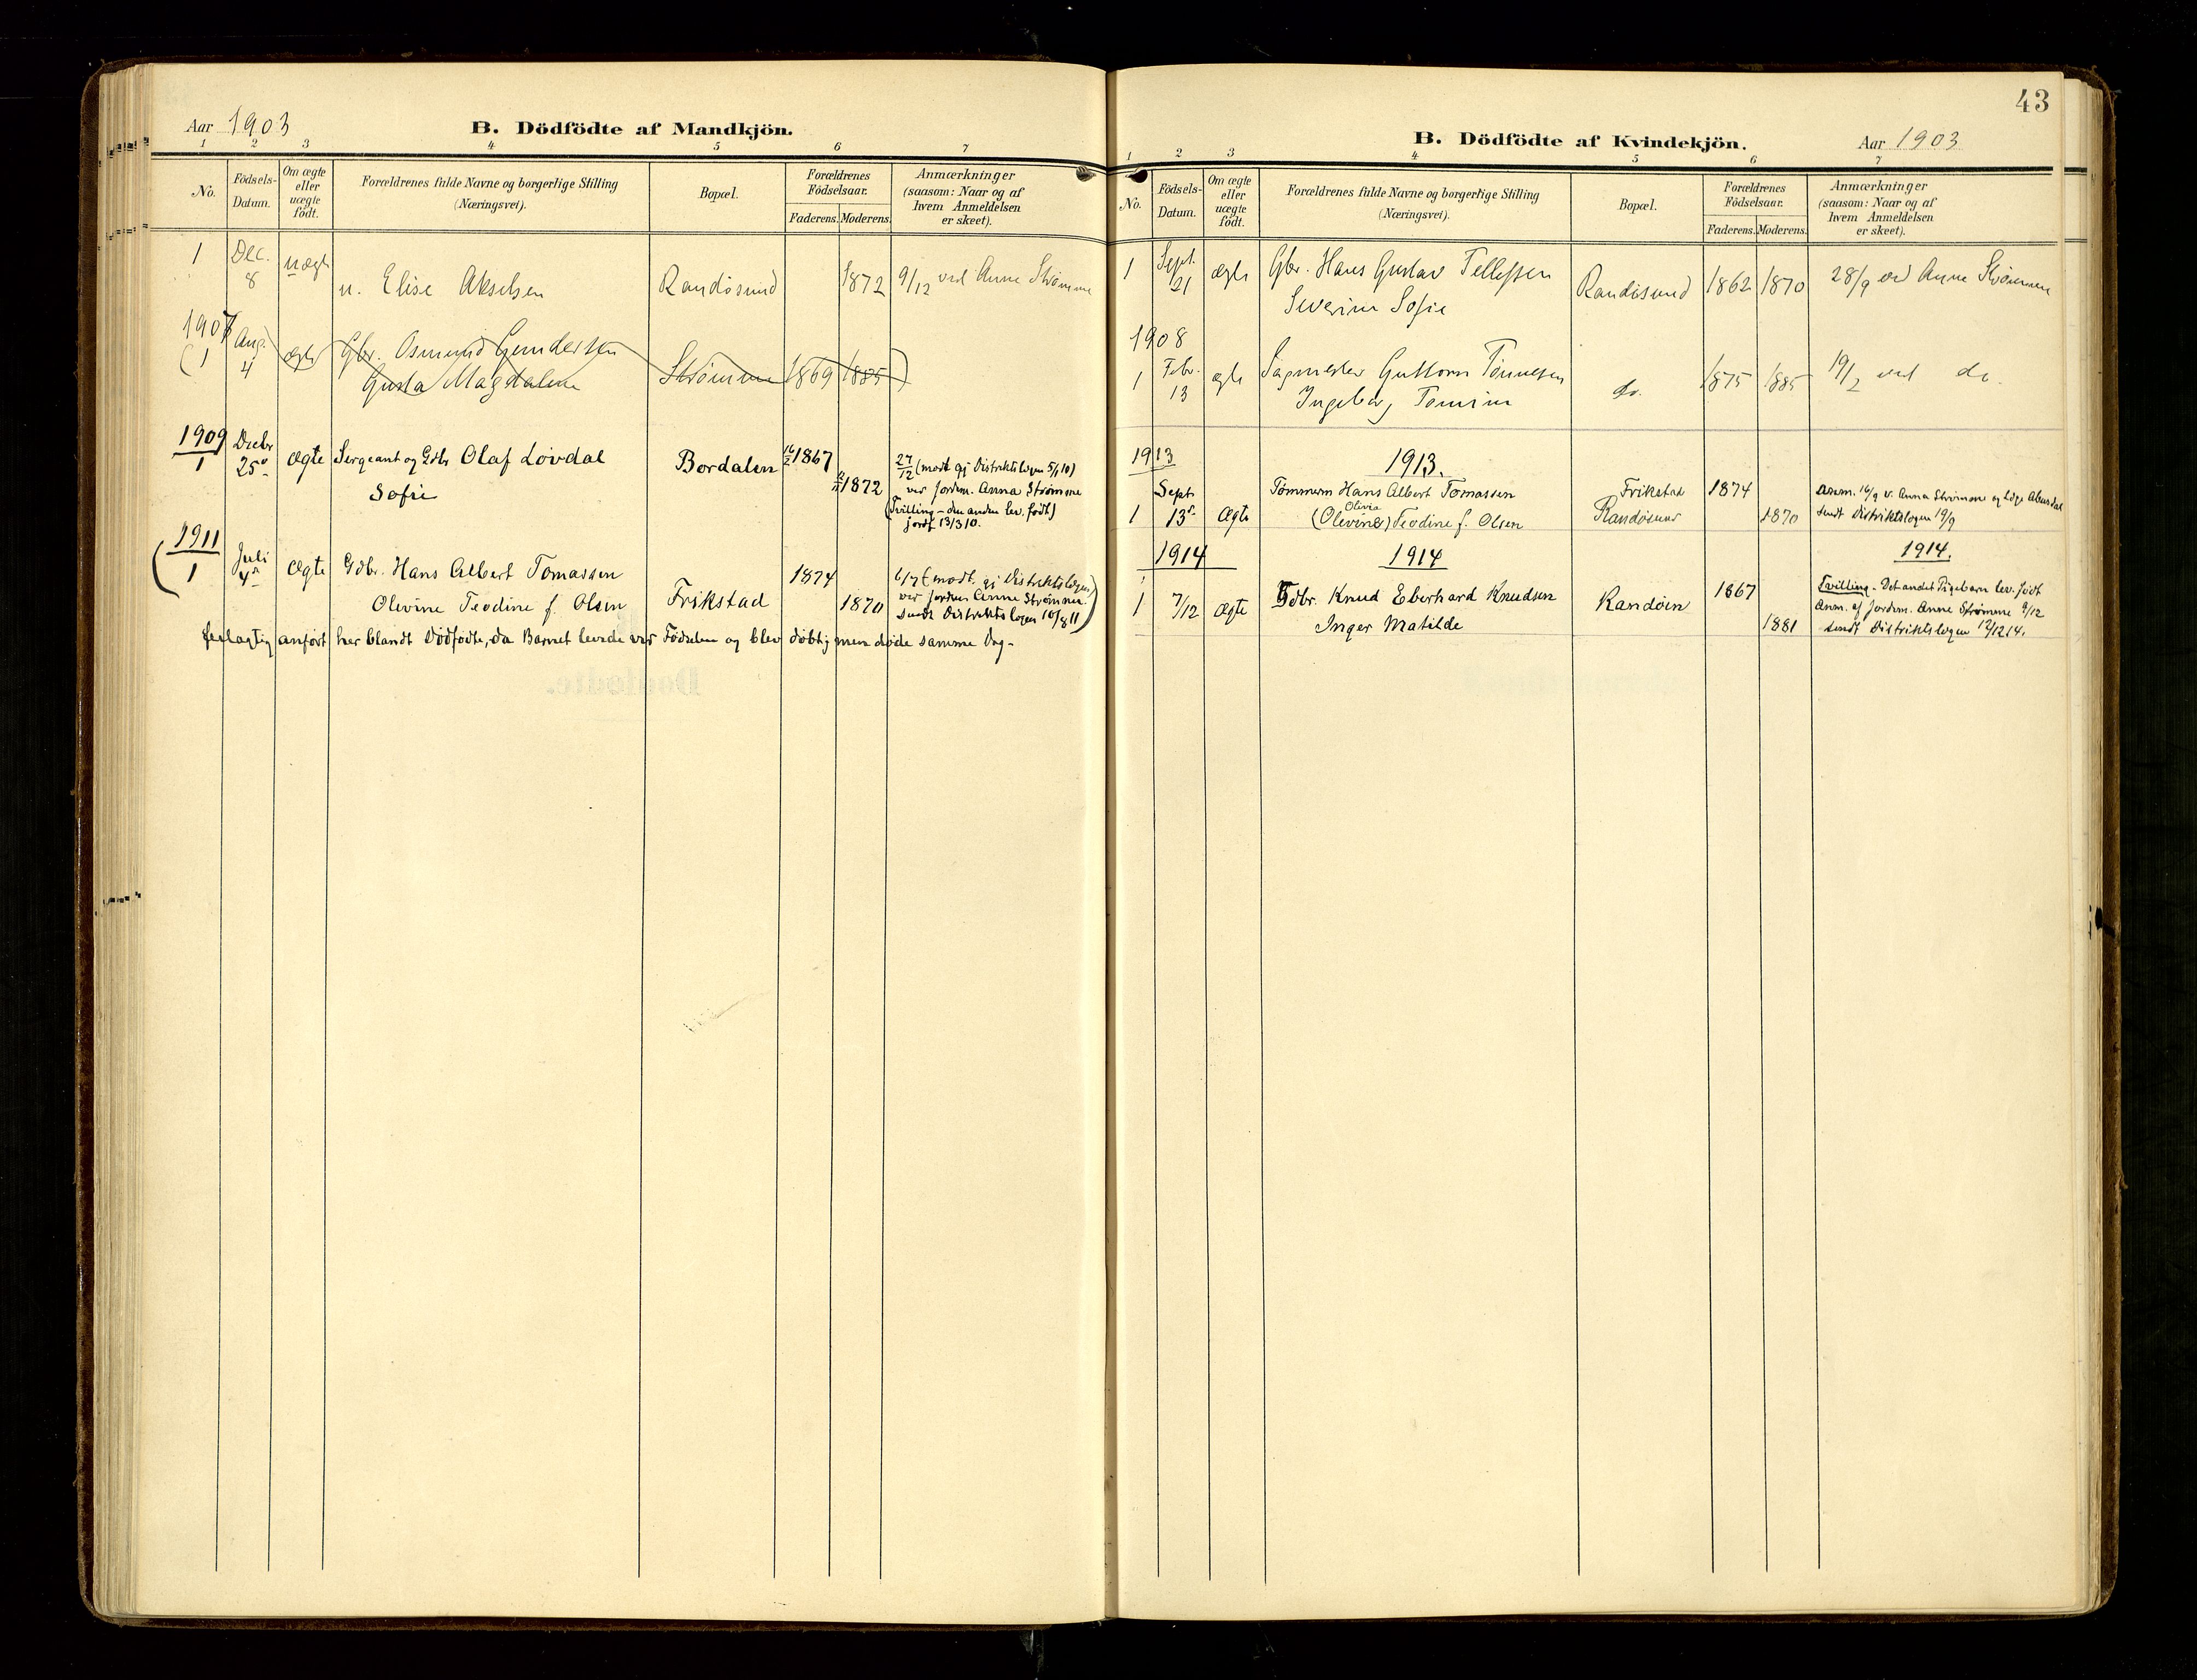 Aar 1903
B. Dödfödte af Mandkjön.
1 2 3 4 5 6 7
No.
Födsels-Datum.
Om ægte eller uægte födt.
Forældrenes fulde Navne og borgerlige Stilling (Næringsvei).
Bopæl.
Forældrenes Födselsaar.
Faderens. Moderens.
Anmærkninger (saasom: Naar og af hvem Anmeldelsen er skeet).
1 Dec. 8 uægte u. Elise Akselsen Randøsund 1872 9/12 ved Anne Strømme
1907
(1 Aug. 4 ægte Gbr. Osmund Gundersen
Gusta Magdalene Strømme 1869 1885)
1909
1 Decbr 25de Ægte Sergeant og Gdbr Olaf Løvdal
Sofie
Bordalen 1867
1872
27/12 (modt gj Distriktslægen 5/1 10)
ved Jordm. Anna Strømme
(Tvilling - den anden lev. født)
jordf. 13/3 10.
(1911
1 Juli 4de Ægte Gdbr. Hans Albert Tomassen
Olevine Teodine f. Olsen
Frikstad
1874
1870
6/7 (modt. gj Distriktslægen)
ved Jordm Anne Strømme.
sendt Distriktslægen 10/8 11)
feilagtig anført her blandt Dødfødte, da Barnet levede ved Fødselen og blev døbt, men døde samme Dag -
43
B. Dödfödte af Kvindekjön.
Aar 1903
1 2 3 4 5 6 7
No.
Födsels-Datum.
Om ægte eller uægte födt.
Forældrenes fulde Navne og borgerlige Stilling (Næringsvei).
Bopæl.
Forældrenes Födselsaar.
Faderens. Moderens.
Anmærkninger (saasom: Naar og af hvem Anmeldelsen er skeet).
1 Sept. 21 ægte Gbr. Hans Gustav Tellefsen
Severine Sofie
Randøsund 1862 1870 28/9 ved Anne Strømme
1908
1 Febr. 13 ægte Sagmester Guttorm Tønnesen
Ingeborg Tomine
do. 1875 1885 19/2 ved do.
1913 1913.
1 Sept 13de Ægte Tømmerm Hans Albert Tomassen
Olivia
(Olevine) Teodine f. Olsen
Frikstad
Randøsund
1874
1870
Anm. 16/9 v. Anna Strømme og Læge
sendt Distriktslægen 19/9
1914 1914 1914.
1 7/12 Ægte Gdbr. Knud Eberhard Knudsen
Inger Matilde
Randøen
1867
1881
Tvilling - Det andet Pigebarn lev. født
Anm. af Jordm. Anne Strømme 9/12
sendt Distriktslægen 12/12 14.